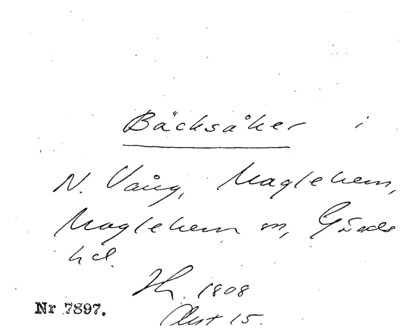 Bäcksåker i
N. Vång, Maglehem,
Maglehem sn, Gärds
hd.
1808
Akt 15.
Nr 7897.